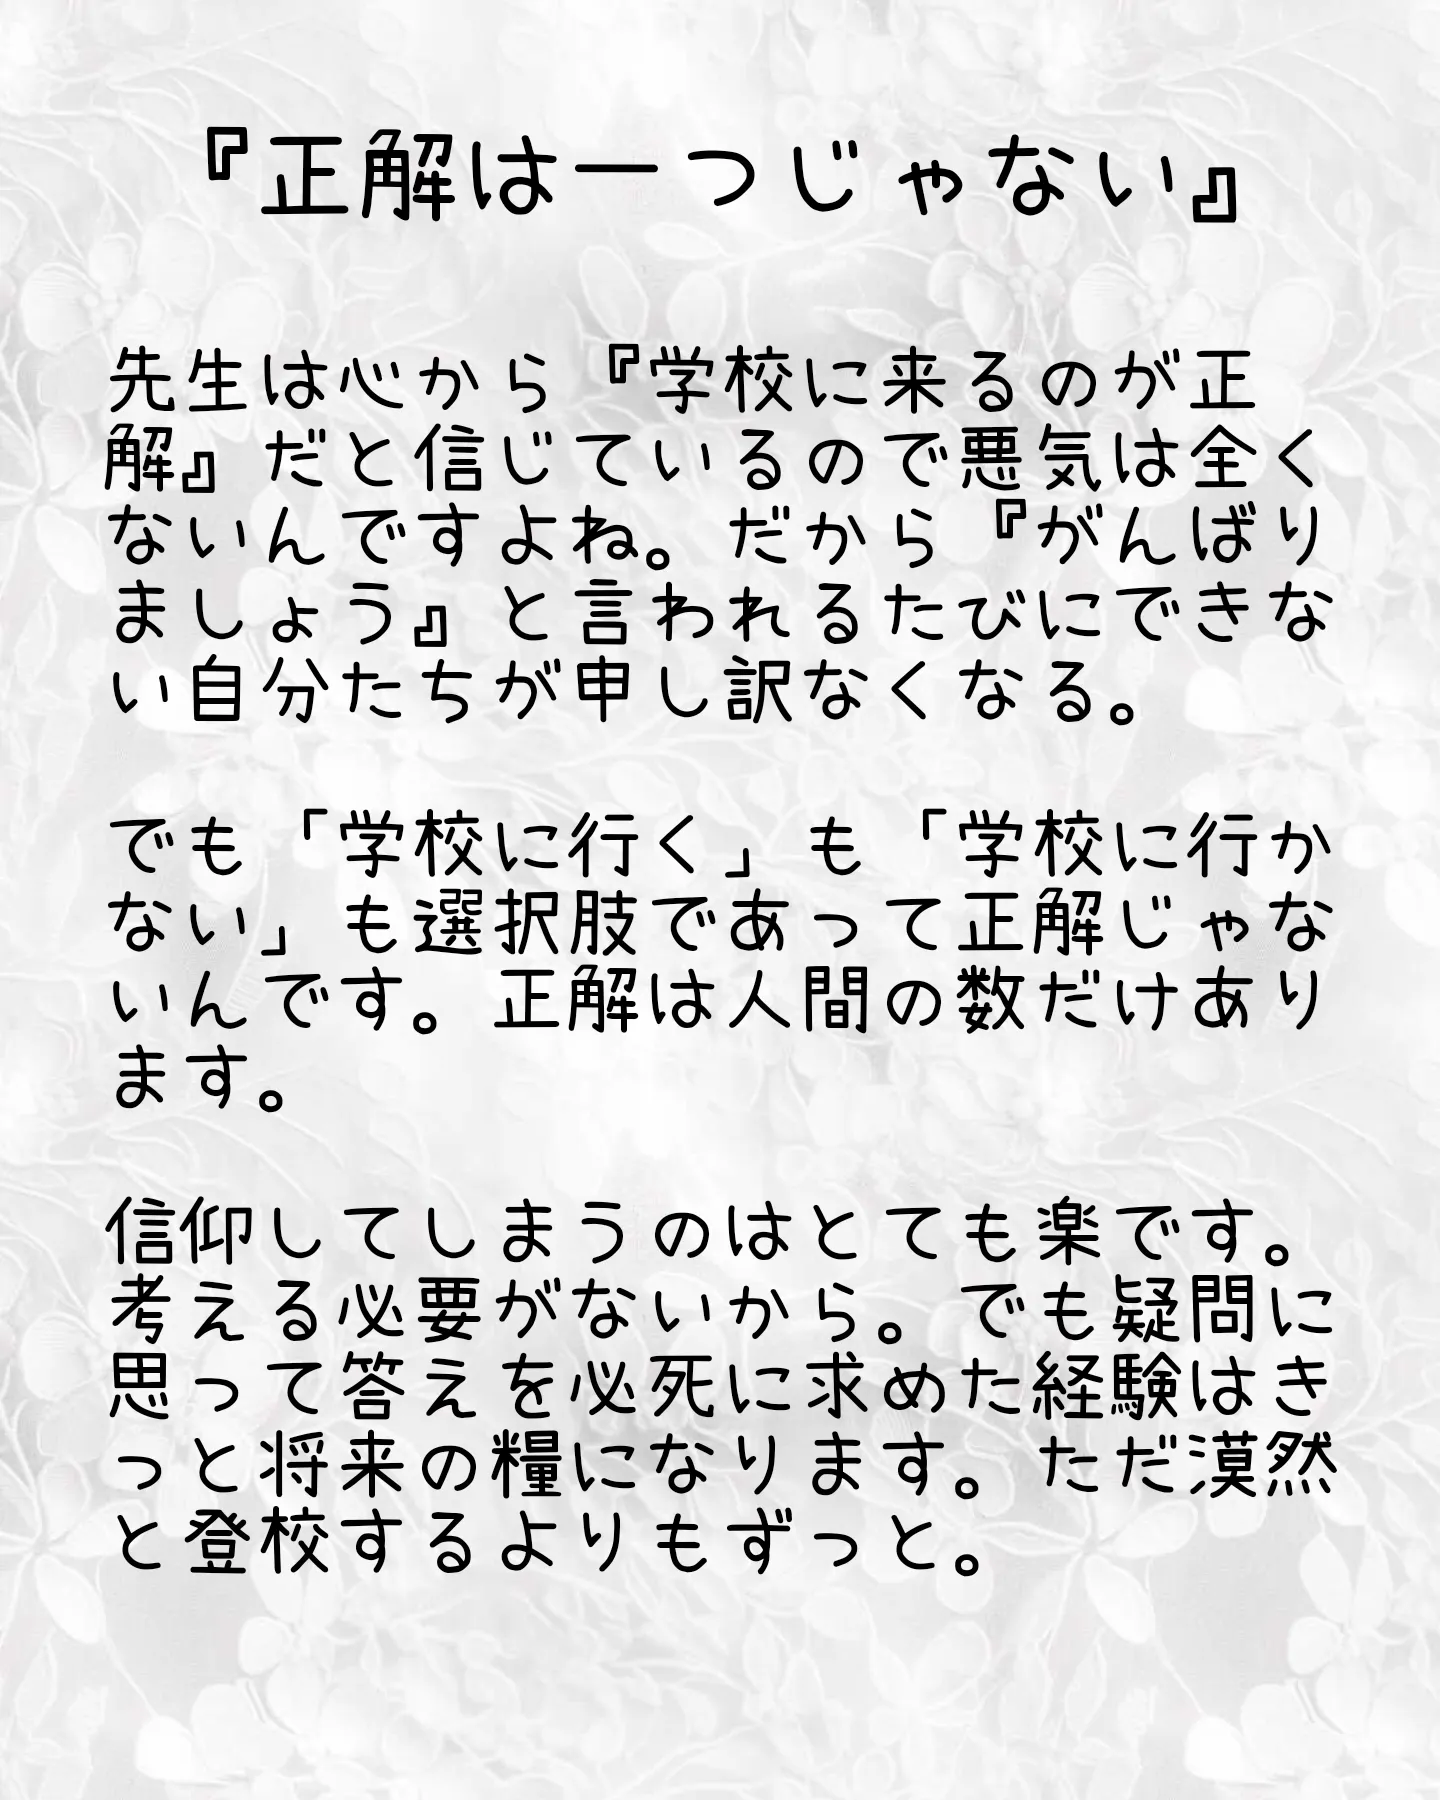 『正解は一つじゃない』
先生は心から『学校に来るのが正
解』だと信じているので悪気は全く
ないんですよね。だから『がんばり
ましょう』と言われるたびにできな
い自分たちが申し訳なくなる。
でも「学校に行く」も「学校に行か
ない」も選択肢であって正解じゃな
いんです。正解は人間の数だけあり
ます。
信仰してしまうのはとても楽です。
考える必要がないから。でも疑問に
思って答えを必死に求めた経験はき
っと将来の糧になります。ただ漠然
と登校するよりもずっと。